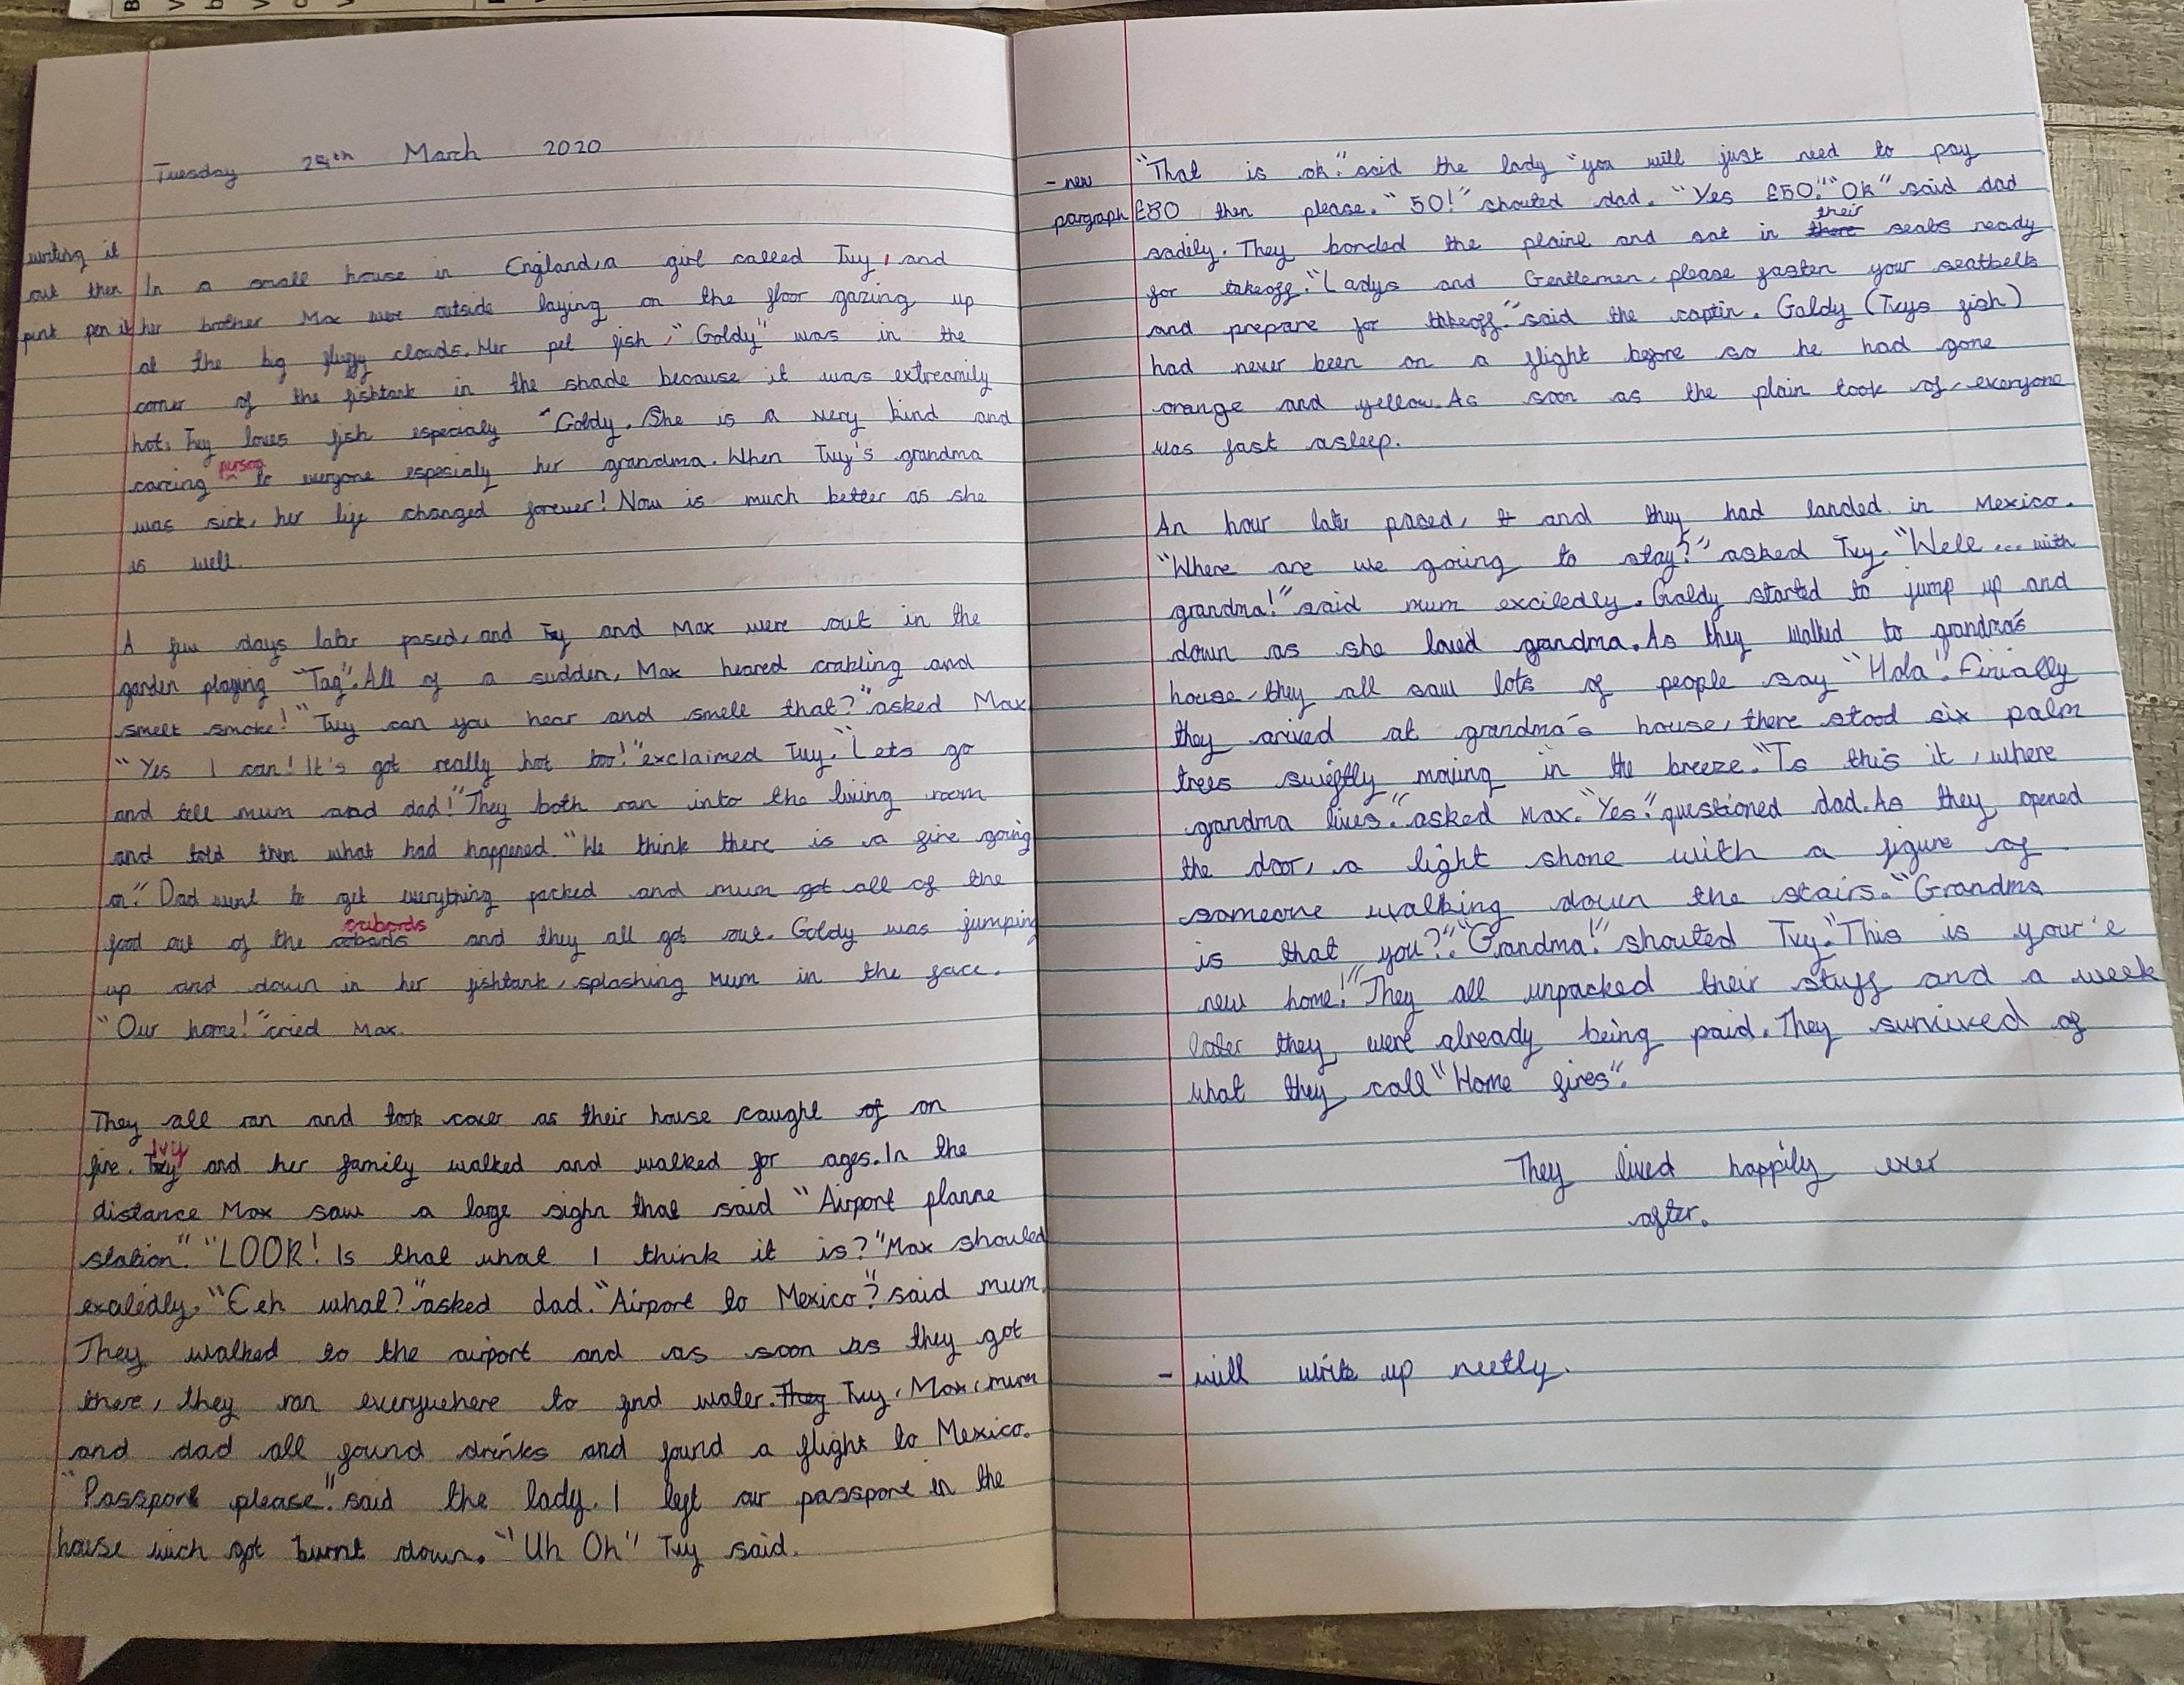 Tuesday 24th March 2020
writing it
out then
pink pen it
In a small house in England, a girl called Ivy, and
her brother Max were outside laying on the floor gazing up
at the big fluffy clouds. Her pet fish, "Goldy" was in the
corner of the fishtank in the shade because it was extreamily
hot. Ivy loves fish especialy "Goldy. She is a very kind and
person
careing to everyone especialy her grandma. When Ivy's grandma
was sick, her life changed forever! Now is much better as she
is well.
A few days later pased, and Ivy and Max were out in the
garden playing "Tag". All of a sudden, Max heared crakling and
smelt smoke! "Ivy can you hear and smell that?" asked Max
"Yes I can! It's got really hot too!" exclaimed Ivy. "Lets go
and tell mum and dad!" They both ran into the living room
and told them what had happened. "We think there is a fire going
on." Dad went to get everything packed and mum got all of the
cubords
food out of the cobards and they all got out. Goldy was jumping
up and down in her fishtank, splashing Mum in the face.
"Our home!" cried Max.
They all ran and took cover as their house caught of on
Ivy
fire. Ivy and her family walked and walked for ages. In the
distance Max saw a large sighn that said "Airport planne
station". "LOOK! Is that what I think it is?" Max shouted
exciledly. "Eeh what?" asked dad. "Airport to Mexico?" said mum.
They walked to the airport and as soon as they got
there, they ran everywhere to find water. They Ivy, Max, mum
and dad all found drinks and found a flight to Mexico.
"Passport please." said the lady. I left our passport in the
house wich got burnt down. "Uh Oh" Ivy said.
- new
paragraph
"That is ok." said the lady "you will just need to pay
£50 then please." "50!" shouted dad. "Yes £50." "Ok" said dad
their
sadily. They bonded the plaine and sat in there seats ready
for takeoff. "Ladys and Gentlemen, please fasten your seatbelts
and prepare for takeoff." said the captin. Goldy (Ivys fish)
had never been on a flight before so he had gone
orange and yellow. As soon as the plain took of, everyone
was fast asleep.
An hour later pased, and they had landed in Mexico.
"Where are we going to stay?" asked Ivy. "Well ... with
grandma!" said mum exciledly. Goldy started to jump up and
down as she loved grandma. As they walked to grandma's
house, they all saw lots of people say "Hola". Finially
they arived at grandma's house, there stood six palm
trees swiftly moving in the breeze. "Is this it, where
grandma lives." asked Max. "Yes." questioned dad. As they opened
the door, a light shone with a figure of
someone walking down the stairs. "Grandma
is that you?". "Grandma!" shouted Ivy. "This is your'e
new home!" They all unpacked their stuff and a week
later they were already being paid. They survived of
what they call "Home fires".
They lived happily ever
after.
- will write up neetly.